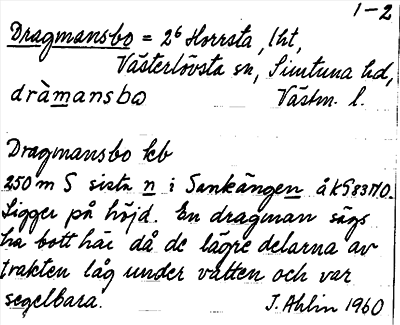 1-2
Dragmansbo = 2⁶ Horrsta, lht,
Västerlövsta sn, Simtuna hd,
dràmansbo Västm. l.
Dragmansbo kb
250 m S sista n i Sankängen å KS 83 NO.
Ligger på höjd. En dragman sägs
ha bott här då de lägre delarna av
trakten låg under vatten och var
segelbara. J. Ahlin 1960